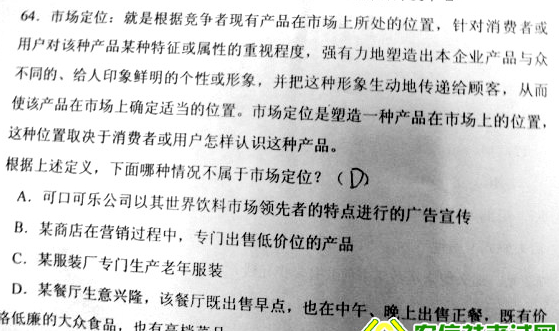 64. 市场定位：就是根据竞争者现有产品在市场上所处的位置，针对消费者或
用户对该种产品某种特征或属性的重视程度，强有力地塑造出本企业产品与众
不同的、给人印象鲜明的个性或形象，并把这种形象生动地传递给顾客，从而
使该产品在市场上确定适当的位置。市场定位是塑造一种产品在市场上的位置，
这种位置取决于消费者或用户怎样认识这种产品。
根据上述定义，下面哪种情况不属于市场定位？（D）
A. 可口可乐公司以其世界饮料市场领先者的特点进行的广告宣传
B. 某商店在营销过程中，专门出售低价位的产品
C. 某服装厂专门生产老年服装
D. 某餐厅生意兴隆，该餐厅既出售早点，也在中午、晚上出售正餐，既有价
格低廉的大众食品，也有高档菜品